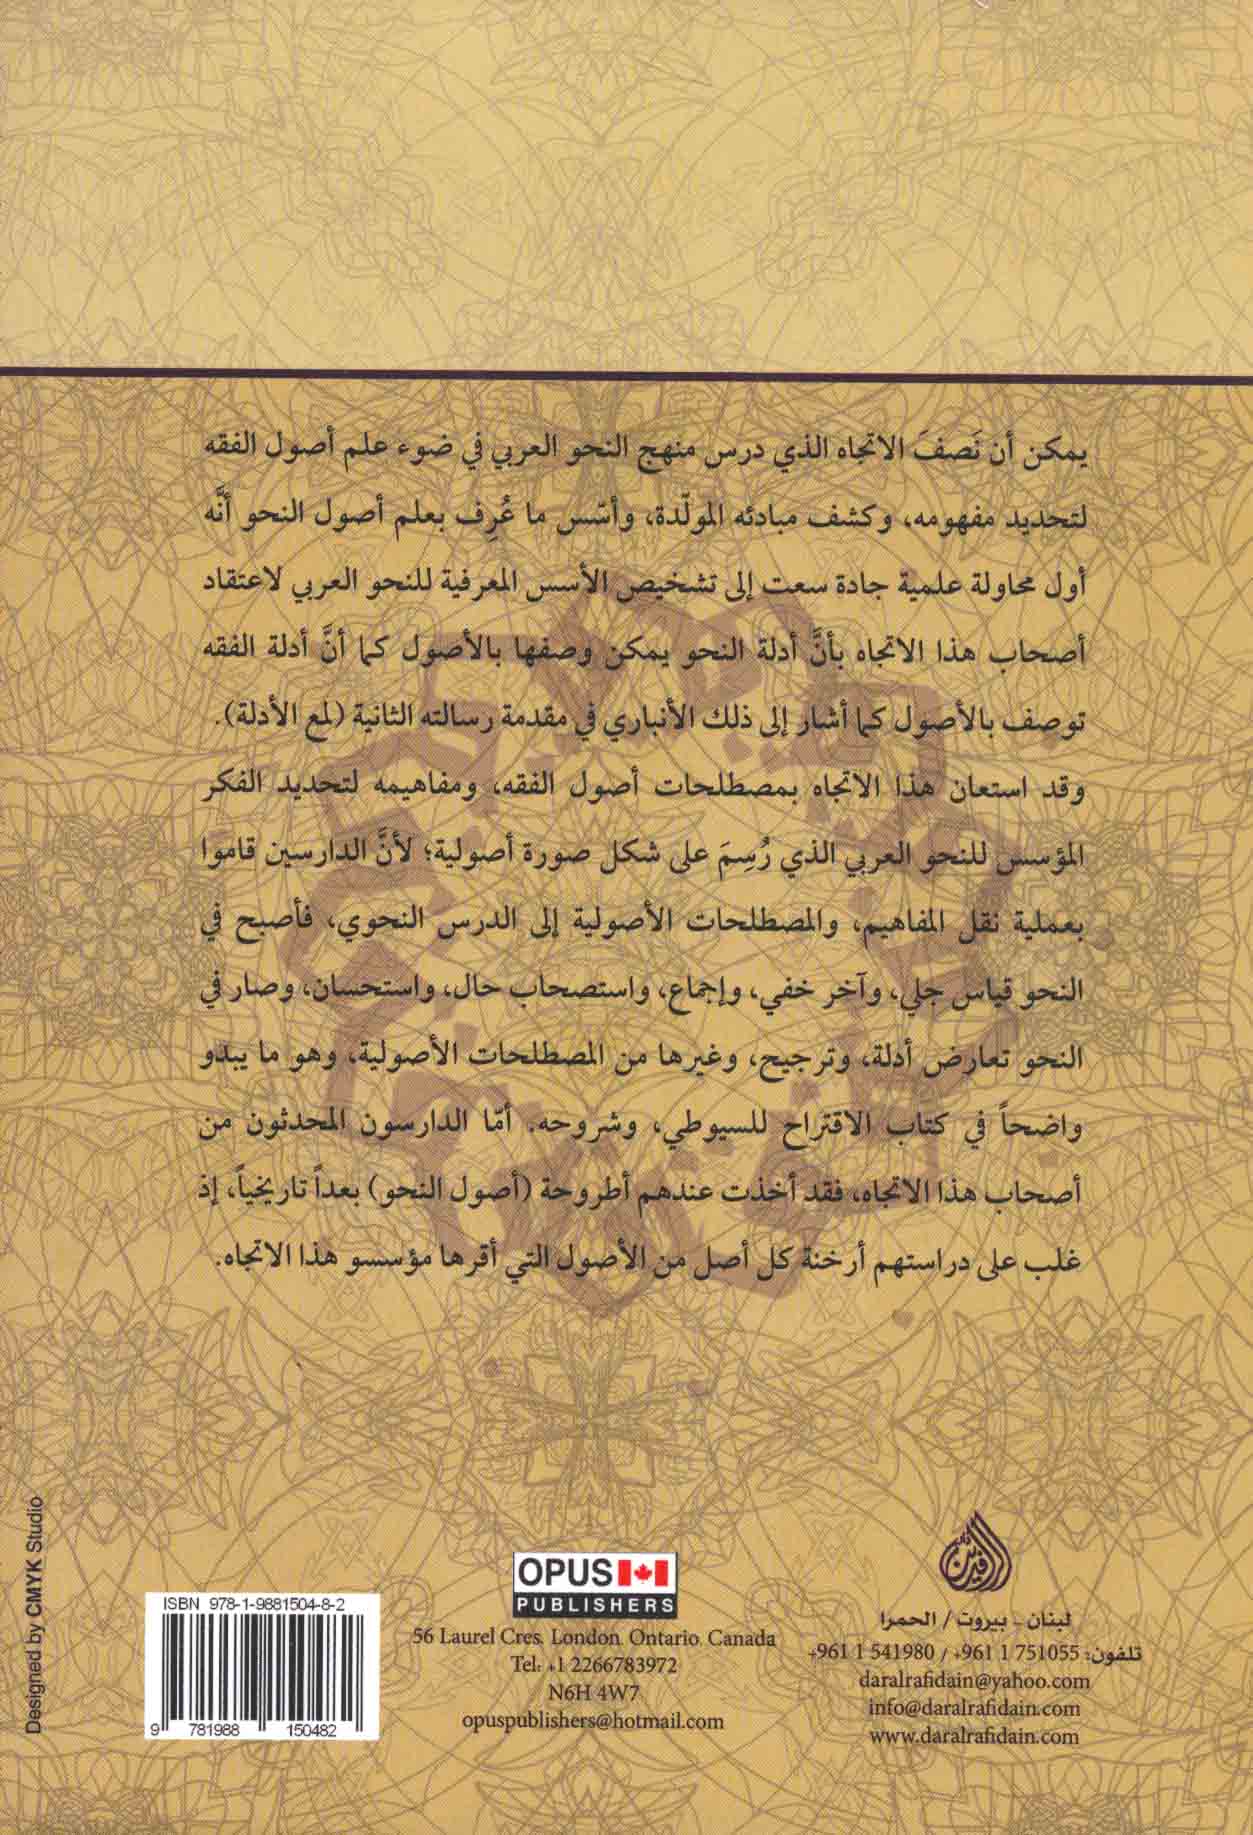 يمكن أن نَصفَ الاتجاه الذي درس منهج النحو العربي في ضوء علم أصول الفقه
لتحديد مفهومه، وكشف مبادئه المولّدة، وأسّس ما عُرِف بعلم أصول النحو أنَّه
أول محاولة علمية جادة سعت إلى تشخيص الأسس المعرفية للنحو العربي لاعتقاد
أصحاب هذا الاتجاه بأنَّ أدلة النحو يمكن وصفها بالأصول كما أنَّ أدلة الفقه
توصف بالأصول كما أشار إلى ذلك الأنباري في مقدمة رسالته الثانية (لمع الأدلة).
وقد استعان هذا الاتجاه بمصطلحات أصول الفقه، ومفاهيمه لتحديد الفكر
المؤسس للنحو العربي الذي رُسِمَ على شكل صورة أصولية؛ لأنَّ الدارسين قاموا
بعملية نقل المفاهيم، والمصطلحات الأصولية إلى الدرس النحوي، فأصبح في
النحو قياس جلي، وآخر خفي، وإجماع، واستصحاب حال، واستحسان، وصار في
النحو تعارض أدلة، وترجيح، وغيرها من المصطلحات الأصولية، وهو ما يبدو
واضحاً في كتاب الاقتراح للسيوطي، وشروحه. أمّا الدارسون المحدثون من
أصحاب هذا الاتجاه، فقد أخذت عندهم أطروحة (أصول النحو) بعداً تاريخياً، إذ
غلب على دراستهم أرخنة كل أصل من الأصول التي أقرها مؤسسو هذا الاتجاه.
الرافدين
لبنان - بيروت / الحمرا
تلفون: +961 1 541980 / +961 1 751055
daralrafidain@yahoo.com
info@daralrafidain.com
www.daralrafidain.com
OPUS
PUBLISHERS
56 Laurel Cres. London. Ontario. Canada
Tel: +1 2266783972
N6H 4W7
opuspublishers@hotmail.com
ISBN 978-1-9881504-8-2
9 781988 150482
Designed by CMYK Studio